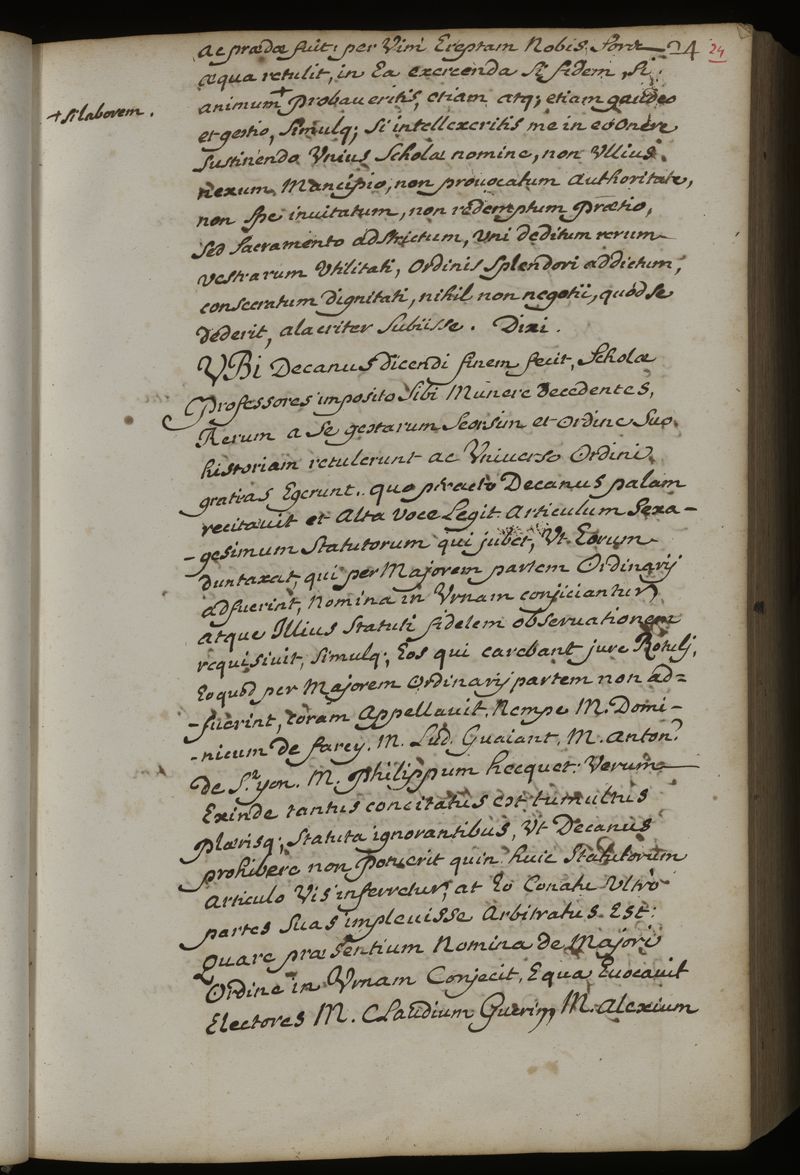 ac prædæ fuit; per Vim Ereptam Nobis. fors 24 24
æqua retulit, in Ea exercenda si fidem, si
animum + Probaueritis, etiam atq; etiam gaudeo
+ si laborem.
et gestio, Simulq; Si intellexeritis me in eo Onere
Sustinendo Vnius Scholæ nomine, non Vllius
nexum Mancipio, non prouocatum Authoritate,
non Spe inuitatum, non redemptum Prætio,
Sed Sacramento adstrictum, Vni deditum rerum
vestrarum Vtilitati, Ordinis Splendori addictum,
consecratum Dignitati, nihil non negotii, quod se
dederit, alacriter Subiisse. Dixi.
VBi Decanus dicendi finem fecit, Scholæ
Professores imposito Sibi Munere decedentes,
Rerum a Se gestarum Seorsim et Ordine Suo
historiam retulerunt ac Vniuerso Ordini
gratias Egerunt. quo peracto Decanus palam
recitauit et Alta Voce Legit Articulum Sexa-
-gesimum Statutorum qui jubet, Vt Eorum
duntaxat, qui per Majorem partem Ordinarij
adfuerint, Nomina in Vrnam conjiciantur,
atque Illius Statuti fidelem obseruationem
requisiuit, Simulq; Eos qui carebant jure Rotulj,
Eo quod per Majorem Ordinarij partem non ad=
-fuerint, coram Appellauit, Nempe M. Domi-
-nicum De farcy. M. Lud. Guaiant, M. Anton.
de St. yon. M. Philippum hecquet: Verum
Exinde tantus concitatus est tumultus
Plærisq; Statuta ignorantibus, Vt Decanus
prohibere non Potuerit quin huic Statutorum
Articulo Vis inferretur, at Eo Conatu Vltrò
partes Suas impleuisse Arbitratus Est:
Quare præsentium Nomina de Majori
Ordine in Vrnam Conjecit, E qua Euocauit
Electores M. Claudium Guerin, M. Alexium